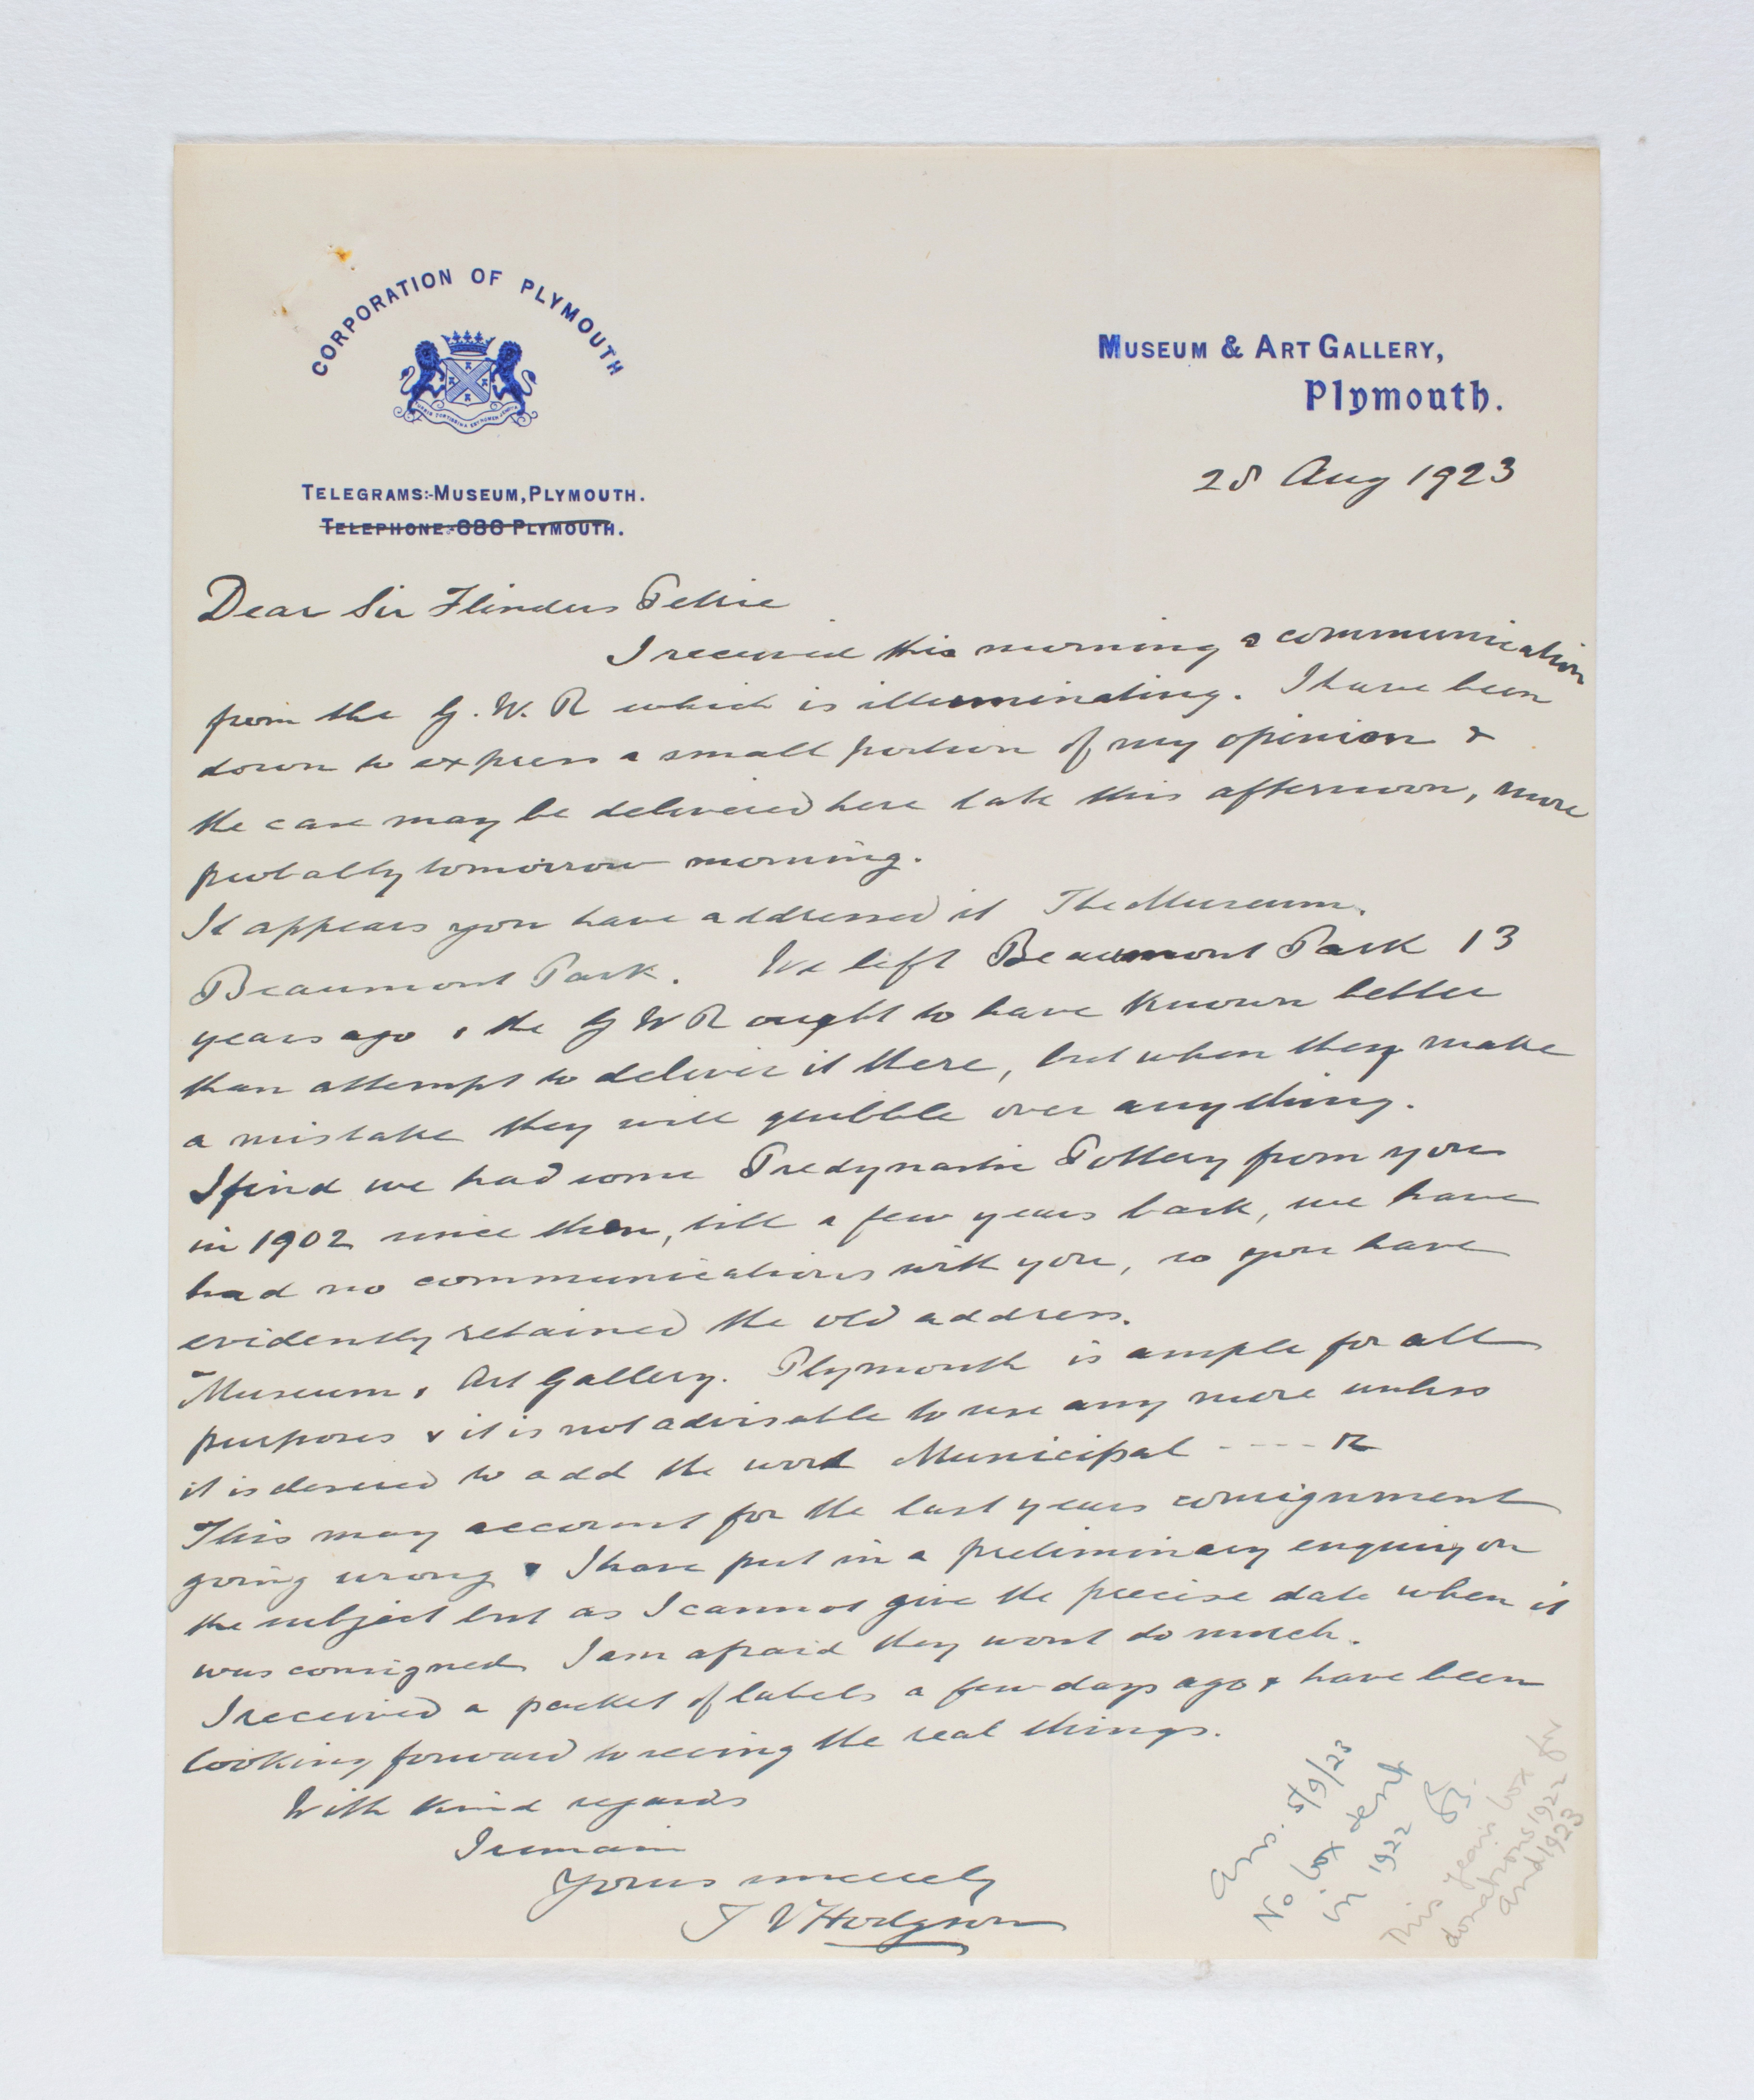 CORPORATION OF PLYMOUTH
MUSEUM & ART GALLERY,
Plymouth.
TELEGRAMS:-MUSEUM, PLYMOUTH.
TELEPHONE:-686 PLYMOUTH.
28 Aug 1923
Dear Sir Flinders Petrie
I received this morning a communication
from the G. W. R which is illuminating. I have been
down to express a small portion of my opinion &
the case may be delivered here late this afternoon, more
probably tomorrow morning.
It appears you have addressed it The Museum.
Beaumont Park. We left Beaumont Park 13
years ago & the G W R ought to have known better
than attempt to deliver it there, but when they make
a mistake they will quibble over anything.
I find we had some Predynastic Pottery from you
in 1902 since then, till a few years back, we have
had no communications with you, so you have
evidently retained the old address.
Museum & Art Gallery. Plymouth is ample for all
purposes & it is not advisable to use any more unless
it is desired to add the word Municipal ----
This may account for the last years consignment
going wrong & I have put in a preliminary enquiry on
the subject but as I cannot give the precise date when it
was consigned I am afraid they wont do much.
I received a packet of labels a few days ago & have been
looking forward to seeing the real things.
With kind regards
I remain
Yours sincerely
T V Hodgson
Ans. 5/9/23
No box sent
in 1922
This years box for
donations 1922
and 1923